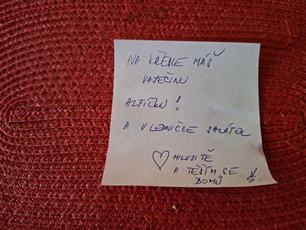 NA LINCE MÁŠ
VAJEČINU
ALFIEM!
A V LEDNIČCE SALÁTEK
♡ MILUJI TĚ
A TĚŠÍM SE
DOMŮ